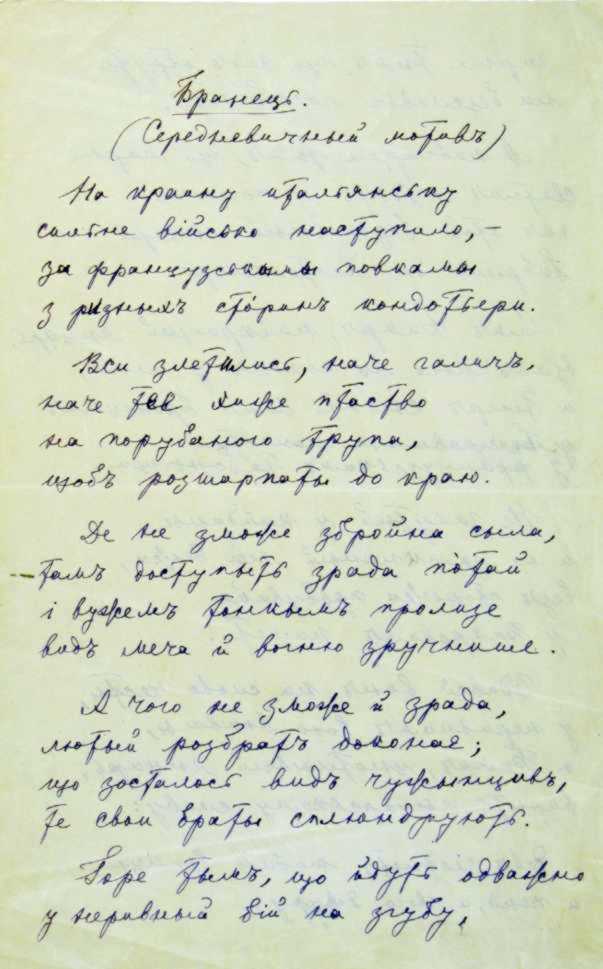 Бранець.
(Середневичный мотивъ)
На краину италтянську
силтне військо наступило, –
за французськымы повкамы
з ризныхъ сторанъ кондотьери.
Вси злетилист, наче галичъ,
наче те хиже птаство
на порубаного трупа,
щобъ розшарпаты до краю.
Де не зможе збройна сыла,
тамъ доступыть зрада потай
і вужемъ тонкымъ пролизе
видъ меча й вогню зручнише.
А чого не зможе й зрада,
лютый розбратъ доконае;
що зосталост видъ чужынцивъ,
те свои браты сплюндрують.
Горе тымъ, що йдуть одважно
у неравный бій на згубу,